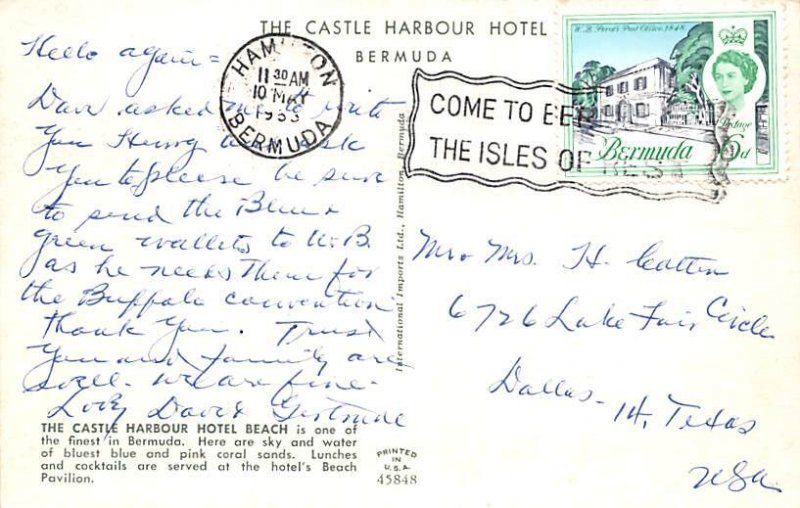 THE CASTLE HARBOUR HOTEL
BERMUDA
Hello again =
Dave asked me to write
You Henry to ask
You to please be sure
to send the Blue &
green wallets to W.B.
as he needs them for
the Buffalo convention
thank You. Trust
You and family are
well. we are fine.
Love Dave & Gertrude
THE CASTLE HARBOUR HOTEL BEACH is one of
the finest in Bermuda. Here are sky and water
of bluest blue and pink coral sands. Lunches
and cocktails are served at the hotel's Beach
Pavilion.
International Imports Ltd., Hamilton, Bermuda
PRINTED
IN
U.S.A.
45848
HAMILTON
11 30 AM
10 MAY
BERMUDA
COME TO
THE ISLES OF REST
W. B. Perot's Post Office 1848
Postage
Bermuda 6d
Mr & Mrs. H. Cotten
6726 Lake Fair Circle
Dallas - 14, Texas
USA